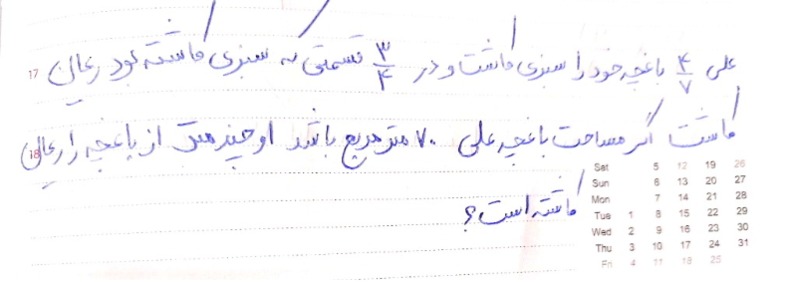 علی ۴/۷ باغچه خود را سبزی کاشت و در ۳/۴ قسمتی که سبزی کاشته بود ریحان
کاشت اگر مساحت باغچه علی ۷۰ متر مربع باشد او چند متر از باغچه را ریحان
کاشته است؟
17
18
Sat 5 12 19 26
Sun 6 13 20 27
Mon 7 14 21 28
Tue 1 8 15 22 29
Wed 2 9 16 23 30
Thu 3 10 17 24 31
Fri 4 11 18 25